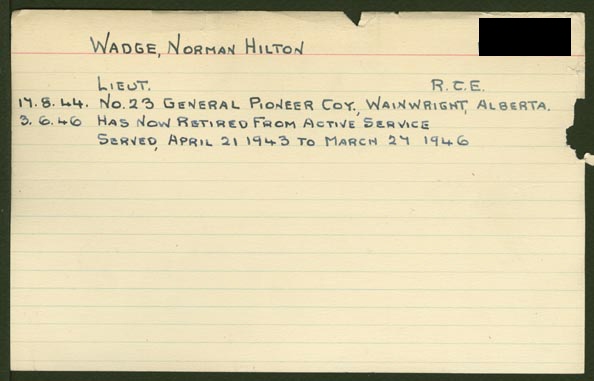 WADGE, NORMAN HILTON
LIEUT. R.C.E.
17.8.44. NO.23 GENERAL PIONEER COY., WAINWRIGHT, ALBERTA.
3.6.46 HAS NOW RETIRED FROM ACTIVE SERVICE
SERVED, APRIL 21 1943 TO MARCH 27 1946